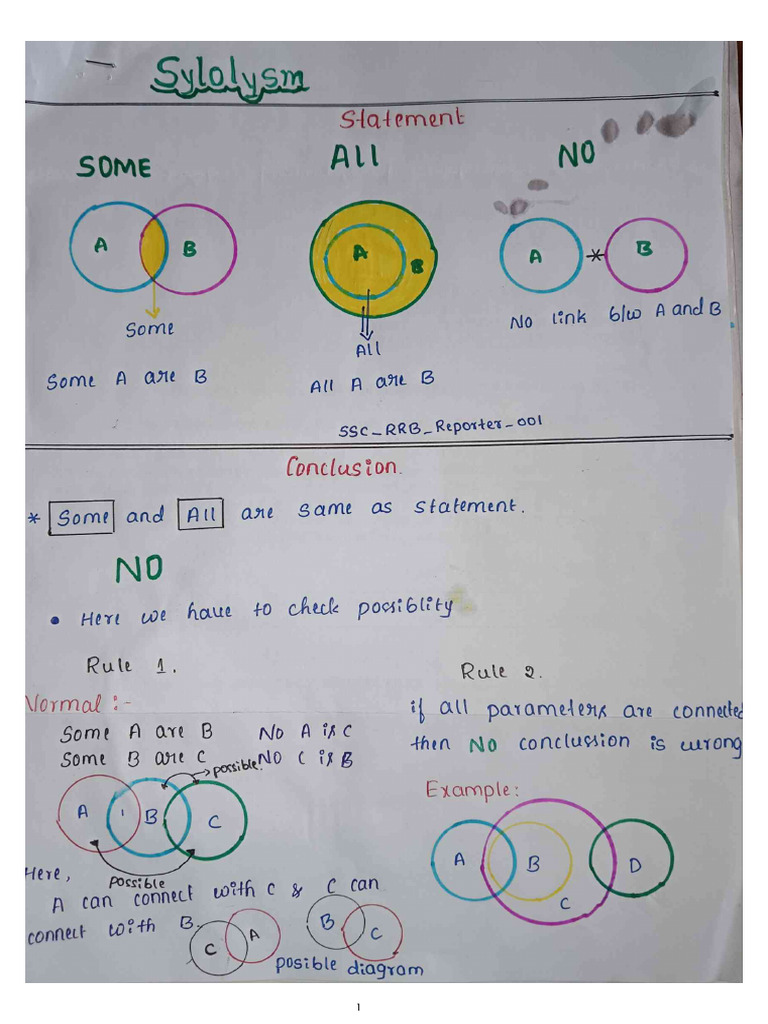 Sylolysm
Statement
SOME
All
NO
A
B
A
B
A
*
B
Some
All
No link b/w A and B
Some A are B
All A are B
SSC_RRB_Reporter_001
Conclusion.
* Some and All are same as statement.
NO
• Here we have to check possiblity
Rule 1.
Rule 2.
Normal :-
if all parameters are connected
Some A are B No A is C
then NO conclussion is wrong
Some B are C NO C is B
possible.
Example:
A
1
B
C
A
B
D
C
Here,
possible
A can connect with C & C can
connect with B.
C
A
B
C
posible diagram
1